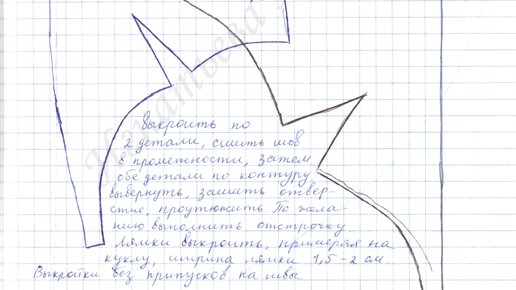 Выкроить по
2 детали, сшить шов
в промежности, затем
обе детали по контуру
вывернуть, зашить отвер-
стие, проутюжить По жела-
нию выполнить отстрочку.
Лямки выкроить, примеряя на
куклу, ширина лямки 1,5-2 см
Выкройки без припусков на швы